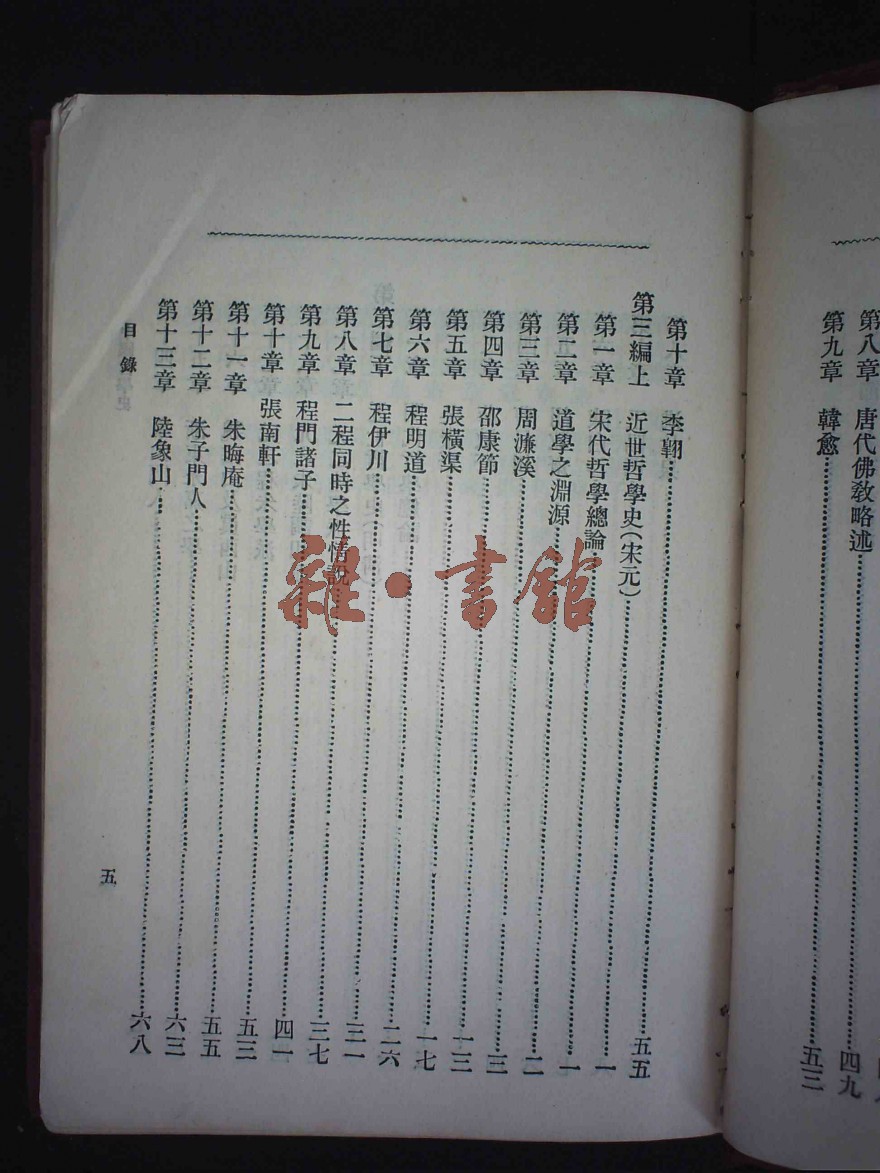 第八章 唐代佛教略述……四九
第九章 韓愈……五三
第十章 李翺……五五
第三編上 近世哲學史(宋元)……一
第一章 宋代哲學總論……一
第二章 道學之淵源……二
第三章 周濂溪……三
第四章 邵康節……一三
第五章 張橫渠……一七
第六章 程明道……二六
第七章 程伊川……三一
第八章 二程同時之性情說……三七
第九章 程門諸子……四一
第十章 張南軒……五三
第十一章 朱晦庵……五五
第十二章 朱子門人……六三
第十三章 陸象山……六八
目錄
五
雜·書館